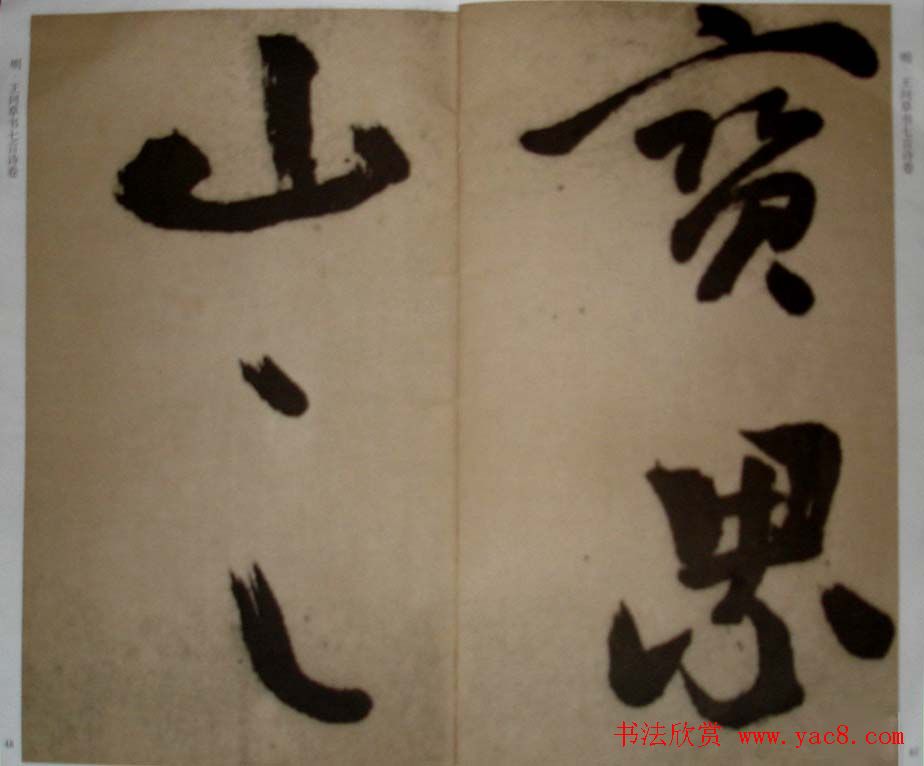 明 王问草书七言诗卷
寶界
山
书法欣赏 www.yac8.com
明 王问草书七言诗卷